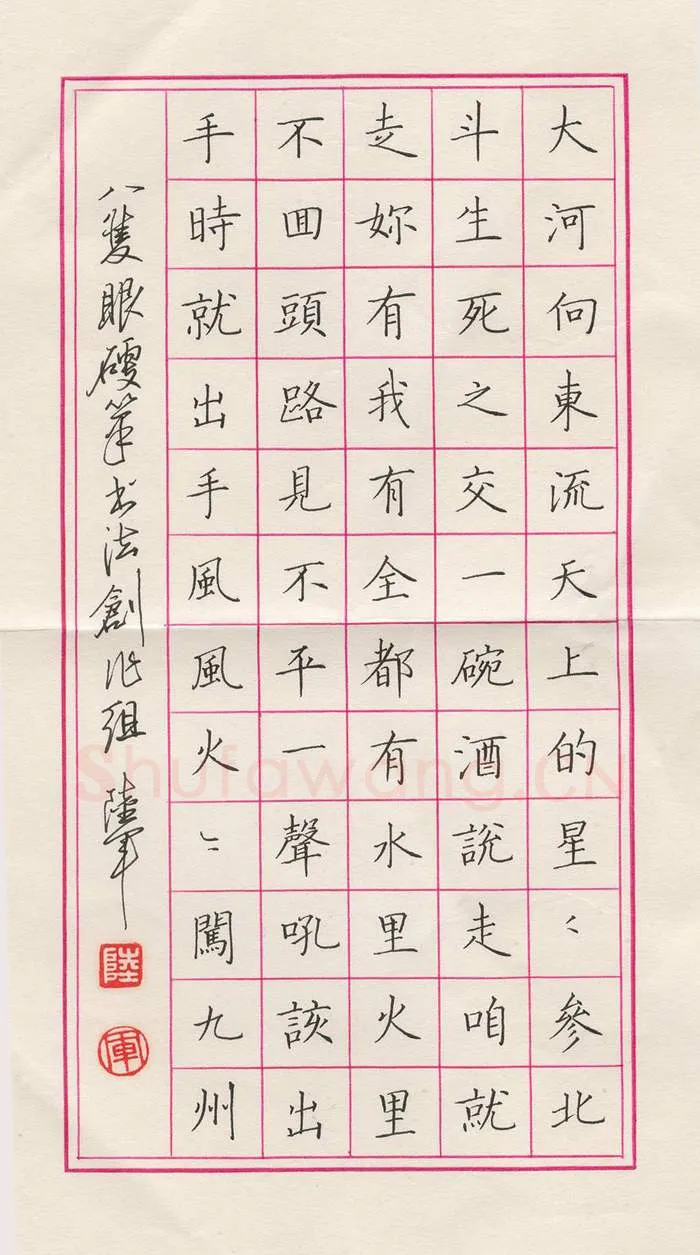 大河向東流天上的星〻參北
斗生死之交一碗酒說走咱就
走妳有我有全都有水里火里
不囬頭路見不平一聲吼該出
手時就出手風風火〻闖九州
八隻眼硬筆书法創作組 陸軍
陸
軍
Shufawang.CN